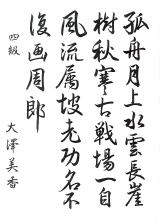 孤舟月上水雲長崖
樹秋寒古戰場一自
風流屬坡老功名不
復画周郎
四級 大澤美香